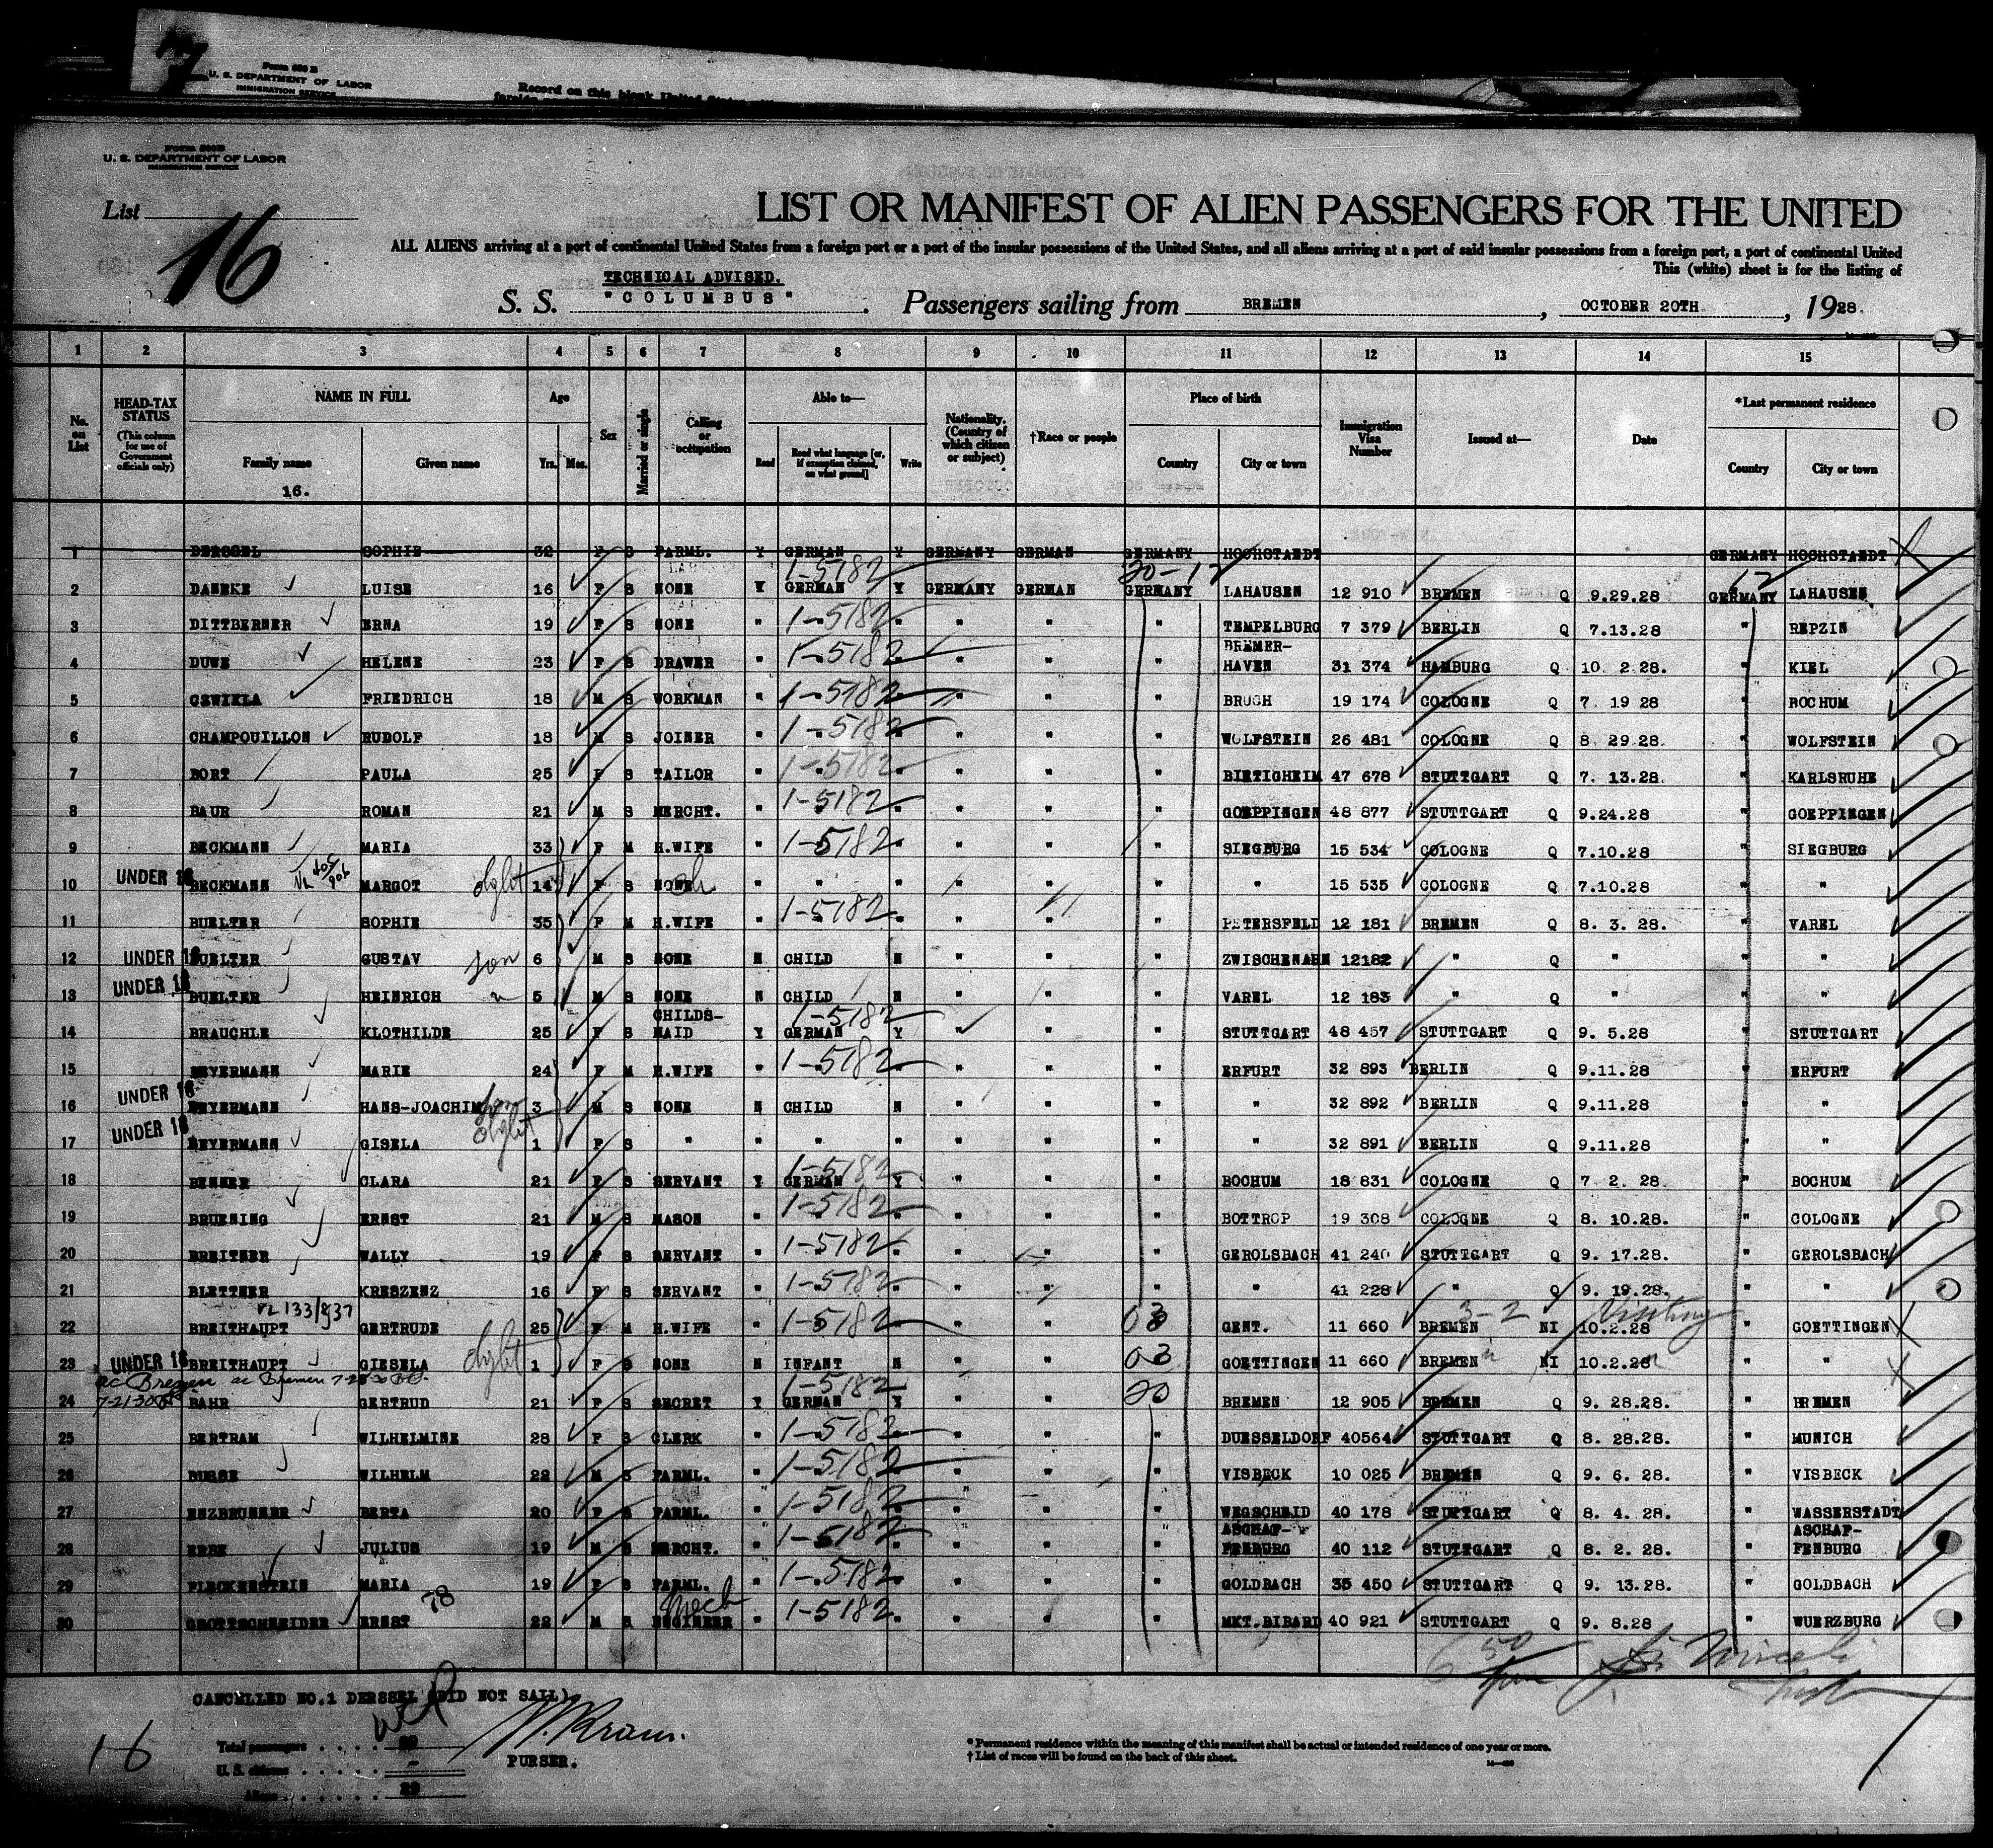 7
Form 500 B
U. S. DEPARTMENT OF LABOR
IMMIGRATION SERVICE
Record on this blank United States
Form 500B
U. S. DEPARTMENT OF LABOR
IMMIGRATION SERVICE
List
16
LIST OR MANIFEST OF ALIEN PASSENGERS FOR THE UNITED
ALL ALIENS arriving at a port of continental United States from a foreign port or a port of the insular possessions of the United States, and all aliens arriving at a port of said insular possessions from a foreign port, a port of continental United
This (white) sheet is for the listing of
TECHNICAL ADVISED.
S. S. "COLUMBUS". Passengers sailing from BREMEN, OCTOBER 20TH., 1928.
1 2 3 4 5 6 7 8 9 10 11 12 13 14 15
No. on List
HEAD-TAX STATUS (This column for use of Government officials only)
NAME IN FULL Family name Given name
16.
Age Yrs. Mos.
Sex
Married or single
Calling or occupation
Able to— Read Read what language [or, if exemption claimed, on what ground] Write
Nationality. (Country of which citizen or subject)
†Race or people
Place of birth Country City or town
Immigration Visa Number
Issued at—
Date
*Last permanent residence Country City or town
1 DERSSEL SOPHIE 32 F S FARML. Y GERMAN Y GERMANY GERMAN GERMANY HOCHSTAEDT GERMANY HOCHSTAEDT
1-5182 20-12 62
2 DANEKE LUISE 16 F S NONE Y GERMAN Y GERMANY GERMAN GERMANY LAHAUSEN 12 910 BREMEN Q 9.29.28 GERMANY LAHAUSEN
3 DITTBERNER ERNA 19 F S NONE " 1-5182 " " " " TEMPELBURG 7 379 BERLIN Q 7.13.28 " REPZIN
4 DUWE HELENE 23 F S DRAWER " 1-5182 " " " " BREMER-HAVEN 31 374 HAMBURG Q 10. 2.28. " KIEL
5 CZWIKLA FRIEDRICH 18 M S WORKMAN " 1-5182 " " " " BRUCH 19 174 COLOGNE Q 7. 19 28 " BOCHUM
6 CHAMPOUILLON RUDOLF 18 M S JOINER " 1-5182 " " " " WOLFSTEIN 26 481 COLOGNE Q 8. 29.28. " WOLFSTEIN
7 BORT PAULA 25 F S TAILOR " 1-5182 " " " " BIETIGHEIM 47 678 STUTTGART Q 7. 13.28. " KARLSRUHE
8 BAUR ROMAN 21 M S MERCHT. " 1-5182 " " " " GOEPPINGEN 48 877 STUTTGART Q 9.24.28 " GOEPPINGEN
9 BECKMANN MARIA 33 F M H.WIFE " 1-5182 " " " " SIEGBURG 15 534 COLOGNE Q 7.10.28 " SIEGBURG
10 UNDER 16 BECKMANN MARGOT dght 14 F S NONE ch " " " " " " " 15 535 COLOGNE Q 7.10.28 " "
11 BUELTER SOPHIE 35 F M H.WIFE " 1-5182 " " " " PETERSFELD 12 181 BREMEN Q 8. 3. 28. " VAREL
12 UNDER 16 BUELTER GUSTAV son 6 M S NONE N CHILD N " " " ZWISCHENAHN 12182 " Q " " "
13 UNDER 16 BUELTER HEINRICH " 5 M S NONE N CHILD N " " " VAREL 12 183 " Q " " "
14 BRAUCHLE KLOTHILDE 25 F S CHILDS-MAID Y GERMAN 1-5182 Y " " " STUTTGART 48 457 STUTTGART Q 9. 5.28 " STUTTGART
15 BEYERMANN MARIE 24 F M H.WIFE " 1-5182 " " " " ERFURT 32 893 BERLIN Q 9.11.28 " ERFURT
16 UNDER 16 BEYERMANN HANS-JOACHIM son 3 M S NONE N CHILD N " " " " 32 892 BERLIN Q 9.11.28 " "
17 UNDER 16 BEYERMANN GISELA dght 1 F S " " " " " " " " 32 891 BERLIN Q 9.11.28 " "
18 BENNER CLARA 21 F S SERVANT Y GERMAN 1-5182 Y " " " BOCHUM 18 831 COLOGNE Q 7 2. 28. " BOCHUM
19 BRUENING ERNST 21 M S MASON " 1-5182 " " " " BOTTROP 19 308 COLOGNE Q 8. 10.28. " COLOGNE
20 BREITNER WALLY 19 F S SERVANT " 1-5182 " " " " GEROLSBACH 41 240 STUTTGART Q 9. 17.28. " GEROLSBACH
21 BLETTNER KRESZENZ 16 F S SERVANT " 1-5182 " " " " " 41 228 " Q 9. 19.28. " "
VL 133/837 3-2 Visiting
22 BREITHAUPT GERTRUDE 25 F M H.WIFE " 1-5182 " " " 03 GENT. 11 660 BREMEN NI 10.2.28 " GOETTINGEN
23 UNDER 16 BREITHAUPT GIESELA dght 1 F S NONE N INFANT N " " 03 GOETTINGEN 11 660 BREMEN " NI 10.2.28 " " "
ac Bremen ac Bremen 7-28-30
7-21-30
24 BAHR GERTRUD 21 F S SECRET Y GERMAN 1-5182 Y " " 20 BREMEN 12 905 BREMEN Q 9. 28.28. " BREMEN
25 BERTRAM WILHELMINE 28 F S CLERK " 1-5182 " " " " DUESSELDORF 40564 STUTTGART Q 8. 28.28. " MUNICH
26 BUSSE WILHELM 22 M S FARML. " 1-5182 " " " " VISBECK 10 025 BREMEN Q 9. 6. 28. " VISBECK
27 ENZBRUNNER BERTA 20 F S FARML. " 1-5182 " " " " WEGSCHEID 40 178 STUTTGART Q 8. 4. 28. " WASSERSTADT
28 ERBE JULIUS 19 M S MERCHT. " 1-5182 " " " " ASCHAF-FENBURG 40 112 STUTTGART Q 8. 2. 28. " ASCHAF-FENBURG
29 FLECKENSTEIN MARIA 19 F S FARML. " 1-5182 " " " " GOLDBACH 35 450 STUTTGART Q 9. 13.28. " GOLDBACH
30 GROTTSCHREIDER ERNST 78 22 M S Mech ENGINEER " 1-5182 " " " " MKT.BIBARD 40 921 STUTTGART Q 9. 8.28 " WUERZBURG
CANCELLED NO.1 DERSSEL (DID NOT SAIL)
16
Total passengers . . . . 29
U. S. citizens . . . . . -
Aliens . . . . . . 29
PURSER.
* Permanent residence within the meaning of this manifest shall be actual or intended residence of one year or more.
† List of races will be found on the back of this sheet.